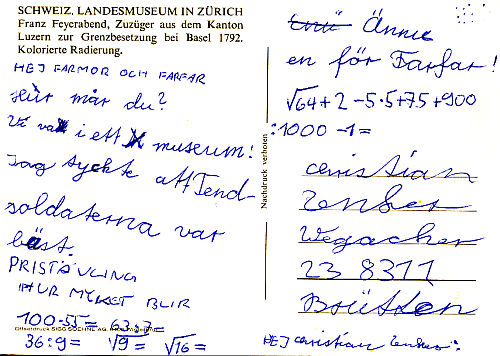 SCHWEIZ. LANDESMUSEUM IN ZÜRICH
Franz Feyerabend, Zuzüger aus dem Kanton
Luzern zur Grenzbesetzung bei Basel 1792.
Kolorierte Radierung.
HEJ FARMOR OCH FARFAR
Hur mår du?
Vi var i ett museum!
Jag tyckte att Tend-
soldaterna var
bäst.
PRISTÄVLING
HUR MYCKET BLIR
100-55= 63:3=
36:9= √9= √16=
Nachdruck verboten
Ännu
en för Farfar!
√64+2-5·5+75+900
:1000-1=
Christian
Zenker
Wegacher
23 8311
Brütten
HEJ Christian Zenker